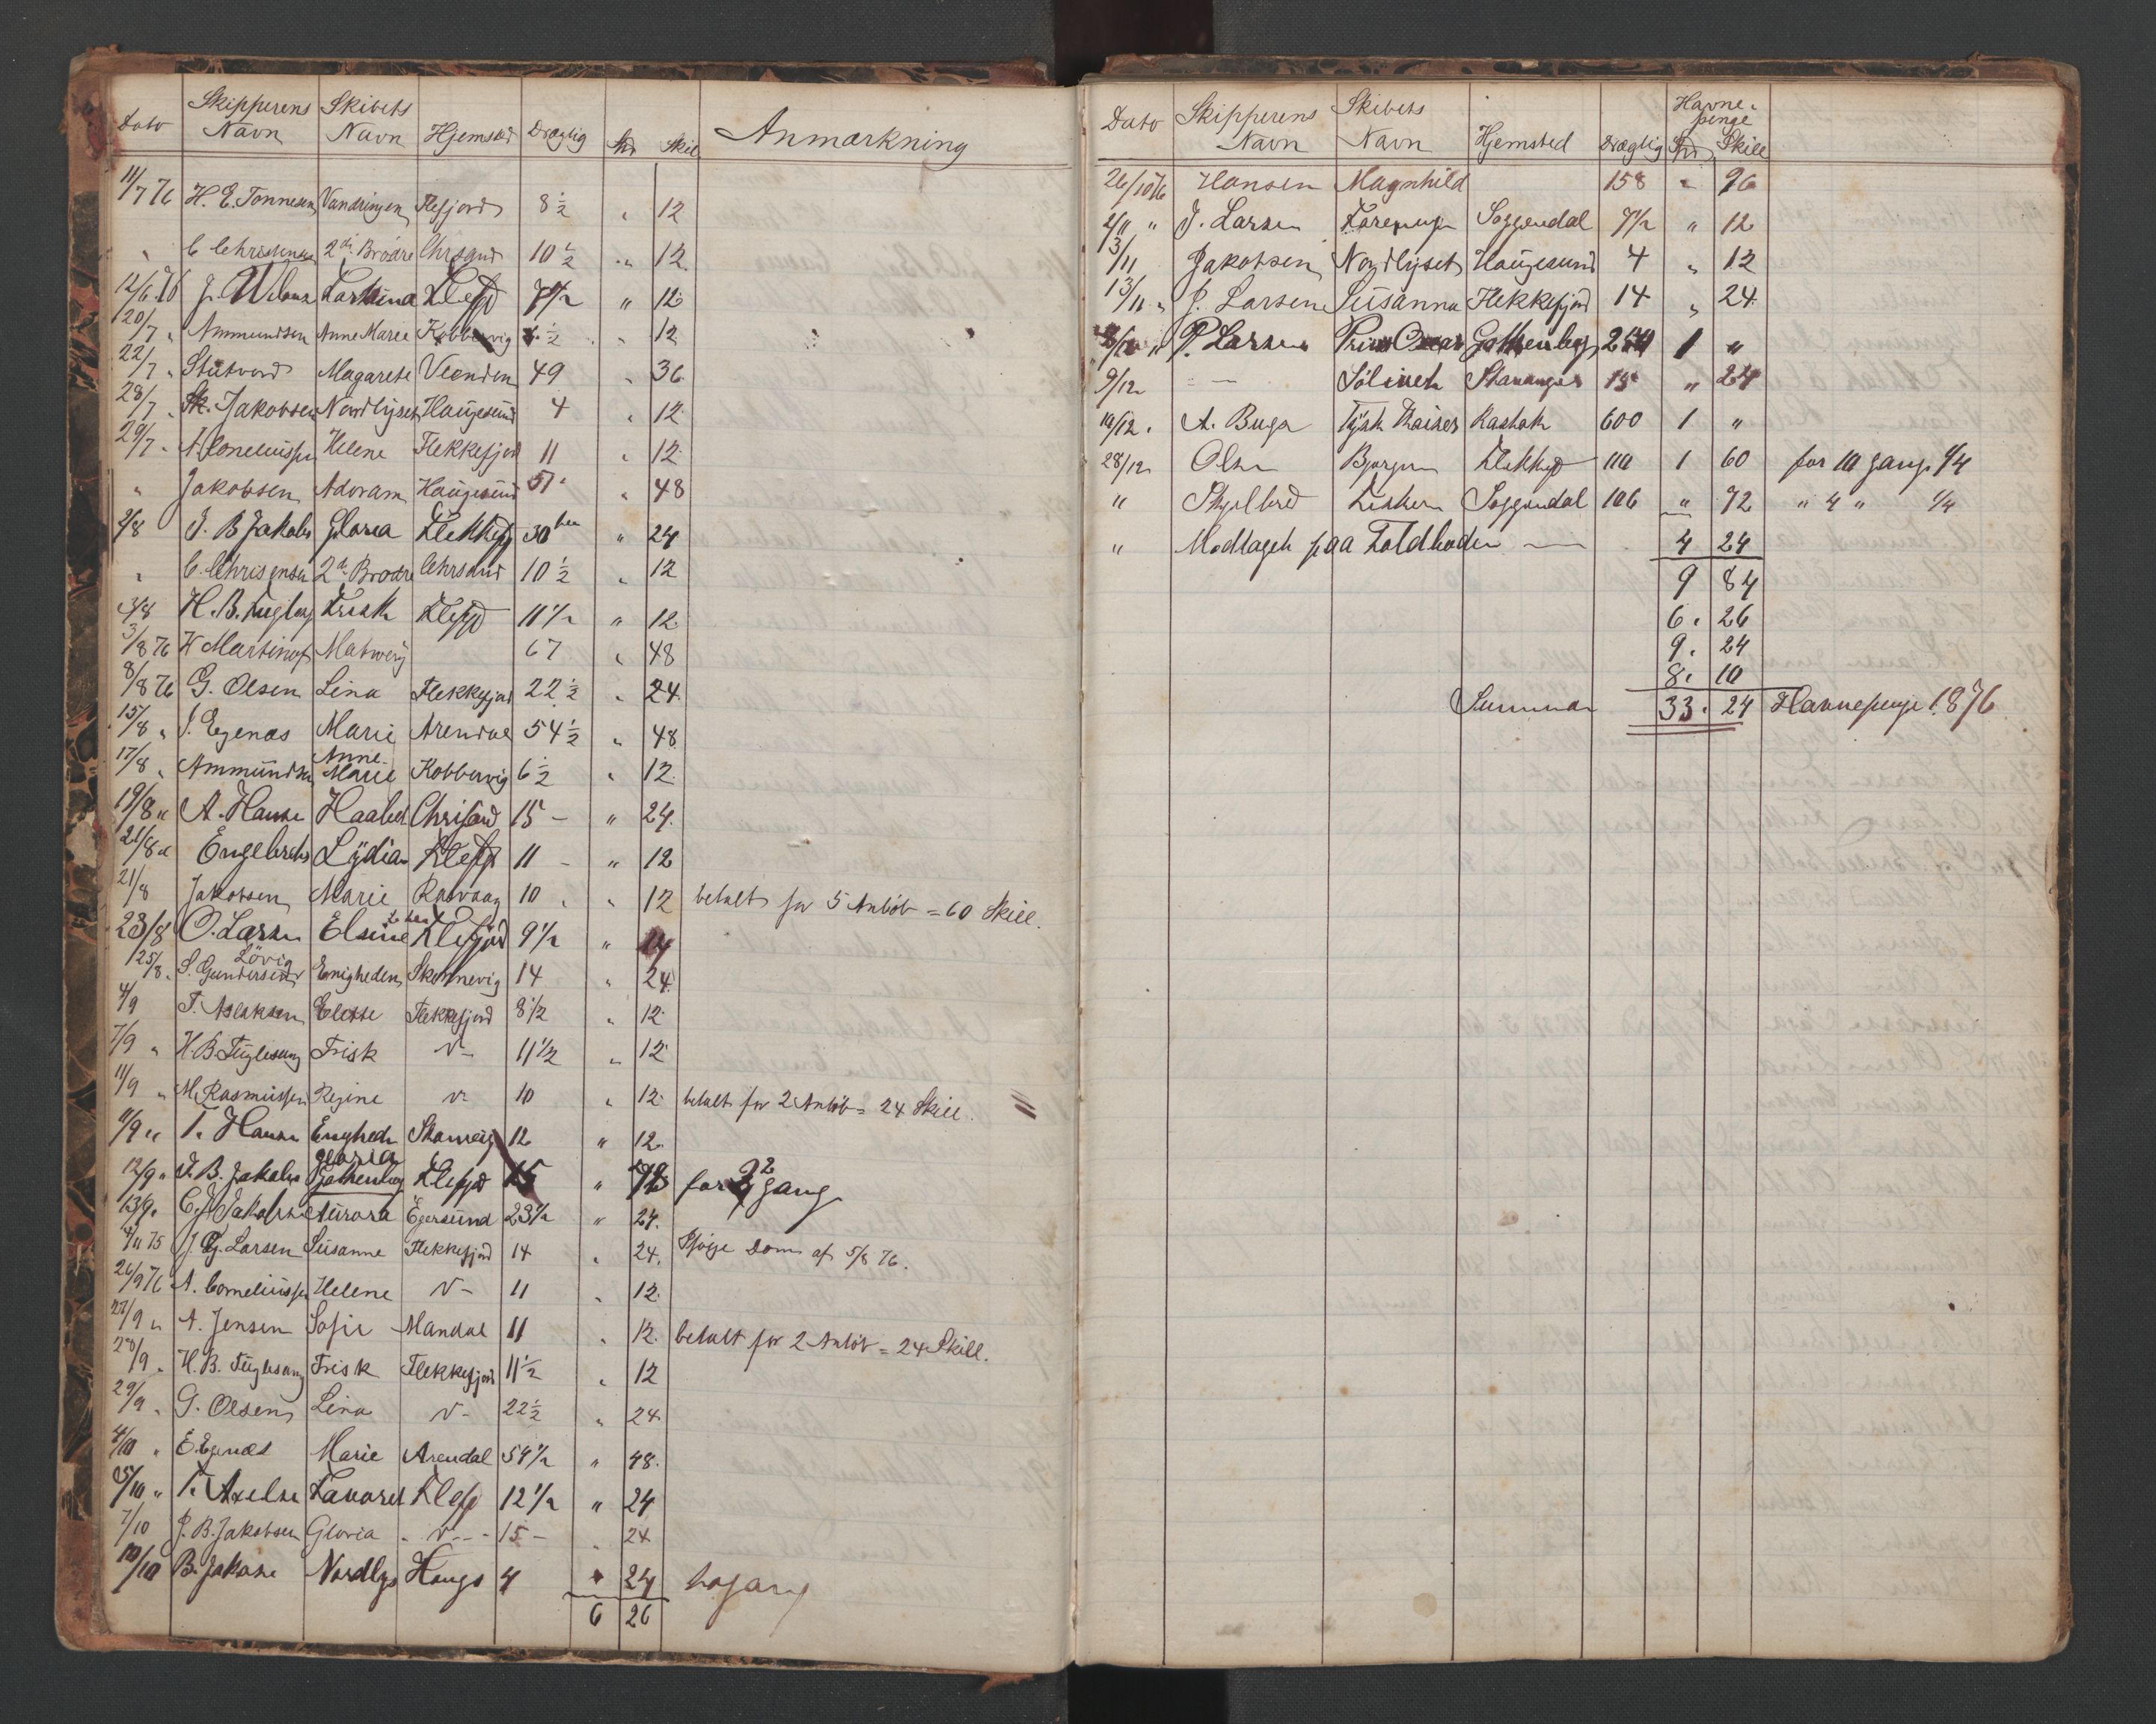 Dato Skipperens Navn Skibets Navn Hjemsted Drægtig Spd Skill Anmærkning
11/7 76 H. E. Tonnesen Vandringen Flefjord 8 1/2 " 12
" C Christensen 2de Brödre Chrsand 10 1/2 " 12
12/6 76 7 1/2 " 12
20/7 " Ammundsen Anne Marie Kobbervig 6 1/2 " 12
22/7 " Magarete 49 " 36
28/7 " Sk. Jakobsen Nordlyset Haugesund 4 " 12
29/7 " A Corneliussen Helene Flekkefjord 11 " 12
" Jakobsen Adoram Haugesund 51 " 48
2/8 J. B Jakobs Gloria Flekkefj 30 " 24
" C. Chrisensen 2de Brödre Chrsand 10 1/2 " 12
3/8 H. B. Fuglesang Frisk Flefjd 11 1/2 " 12
3/8 76 67 " 48
8/8 76 G. Olsen Lina Flekkefjord 22 1/2 " 24
15/8 " J. Egenæs Marie Arendal 54 1/2 " 48
17/8 " Ammundsen Anne-Marie Kobbervig 6 1/2 " 12
19/8 " A. Hansen Haabet Chrisand 15 - " 24
21/8 " Engelbrets Lydia Flefj 11 - " 12
21/8 Jakobsen Marie Rasvaag 10 " " 12 betalt for 5 Anløb = 60 Skill.
23/8 O. Larsen Elsine Flefjord 9 1/2 "
25/8 " S. Gundersen Lövig Enigheden Skonnevig 14 " 24
4/9 T. Aslaksen Flekkefjord 8 1/2 " 12
7/9 " H. B. Fuglesang Frisk 11 1/2 " 12
11/9 " M. Rasmussen Regine 10 " 12 betalt for 2 Anløb = 24 Skill.
11/9 " T. Hansen Enighedn 12 " 12
12/9 " J. B. Jakobs Gloria Flefjd 15 " for 2 gang
13/9 " Jakobsen Aurora Egersund 23 1/2 " 24
J. G. Larsen Susanne Flekkefjord 14 " 24 Ifølge Dom af 5/8 76.
26/9 76 A. Corneliussen Helene 11 " 12
27/9 " A. Jensen Sofie Mandal 11 " 12 betalt for 2 Anløb = 24 Skill.
28/9 " H. B. Fuglesang Frisk Flekkefjord 11 1/2 " 12
29/9 " G. Olsen Lina 22 1/2 " 24
4/10 " E. Egenæs Marie Arendal 54 1/2 " 48
5/10 " T. Axelsen Favoret Flefj 12 1/2 " 24
7/10 J. B. Jakobsen Gloria 15 - " 24
10/10 B. Jakobsen Nordlys Hauges 4 " 24 to gang
6 26
Dato Skipperens Navn Skibets Navn Hjemsted Drægtig Havne-penge Spd Skill
26/10 76 Hansen Magnhild 158 " 96
2/11 " J. Larsen Soggendal 7 1/2 " 12
3/11 Jakobsen Nordlyset Haugesund 4 " 12
13/11 " J. Larsen Susanna Flekkefjord 14 " 24
P. Larsen Gothenborg 1 "
9/12 — Stavanger 15 " 24
A. Buga Tysk Kaiser 600 1 "
28/12 Olsen Flekkefj 110 1 60 for 10 gang 1/4
" Soggendal 106 " 72 " 4 " 1/4
" Modtaget paa Toldboden — 4 24
9 84
6 . 26
9 . 24
8 . 10
Summa 33 . 24 Havnepenge 1876